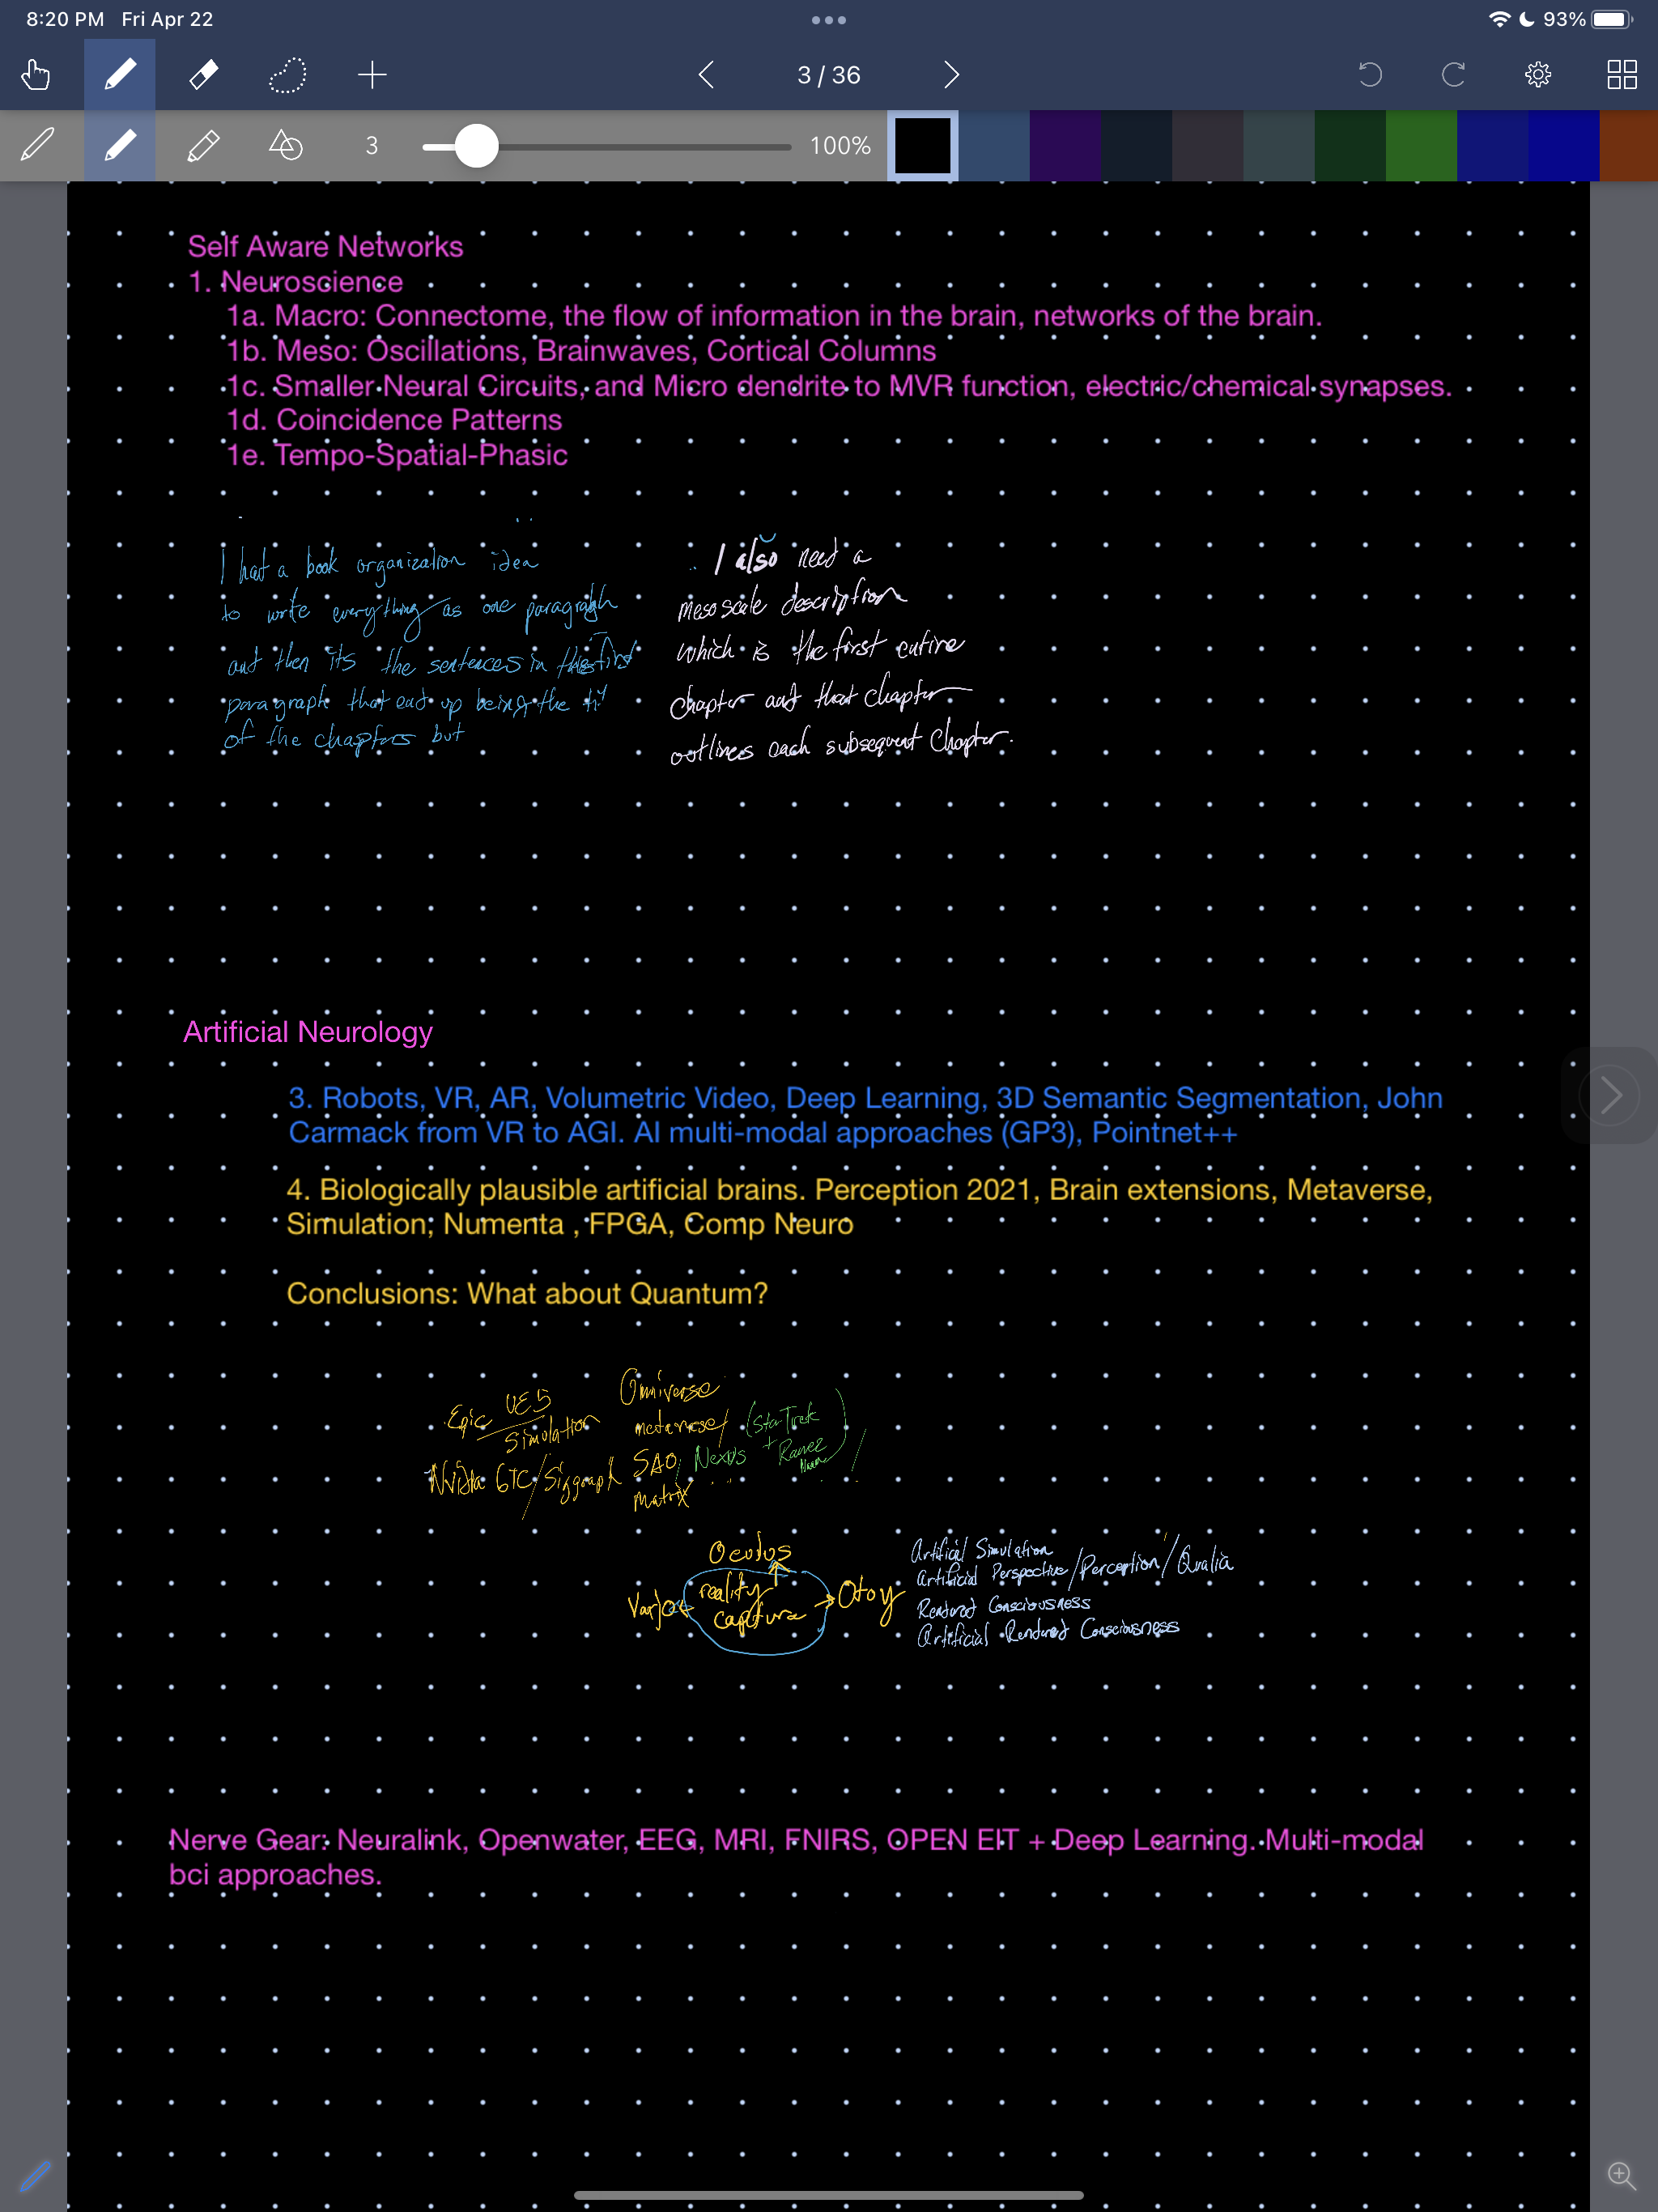 8:20 PM Fri Apr 22
93%
3 / 36
3
100%
Self Aware Networks
1. Neuroscience
1a. Macro: Connectome, the flow of information in the brain, networks of the brain.
1b. Meso: Oscillations, Brainwaves, Cortical Columns
1c. Smaller Neural Circuits, and Micro dendrite to MVR function, electric/chemical synapses.
1d. Coincidence Patterns
1e. Tempo-Spatial-Phasic
I had a book organization idea
to write everything as one paragraph
and then its the sentences in the first
paragraph that end up being the
of the chapters but
I also need a
mesoscale description
which is the first entire
chapter and that chapter
outlines each subsequent chapter.
Artificial Neurology
3. Robots, VR, AR, Volumetric Video, Deep Learning, 3D Semantic Segmentation, John
Carmack from VR to AGI. AI multi-modal approaches (GP3), Pointnet++
4. Biologically plausible artificial brains. Perception 2021, Brain extensions, Metaverse,
Simulation, Numenta , FPGA, Comp Neuro
Conclusions: What about Quantum?
Epic UE5
Simulation
Nvidia GTC/Siggraph
Omniverse
metaverse/ (Star Trek
SAO, Nexus +
Matrix
Oculus
Varjo
reality
capture
Otoy
Artificial Simulation
Artificial Perspective/Perception/Qualia
Rendered Consciousness
Artificial Rendered Consciousness
Nerve Gear: Neuralink, Openwater, EEG, MRI, FNIRS, OPEN EIT + Deep Learning. Multi-modal
bci approaches.